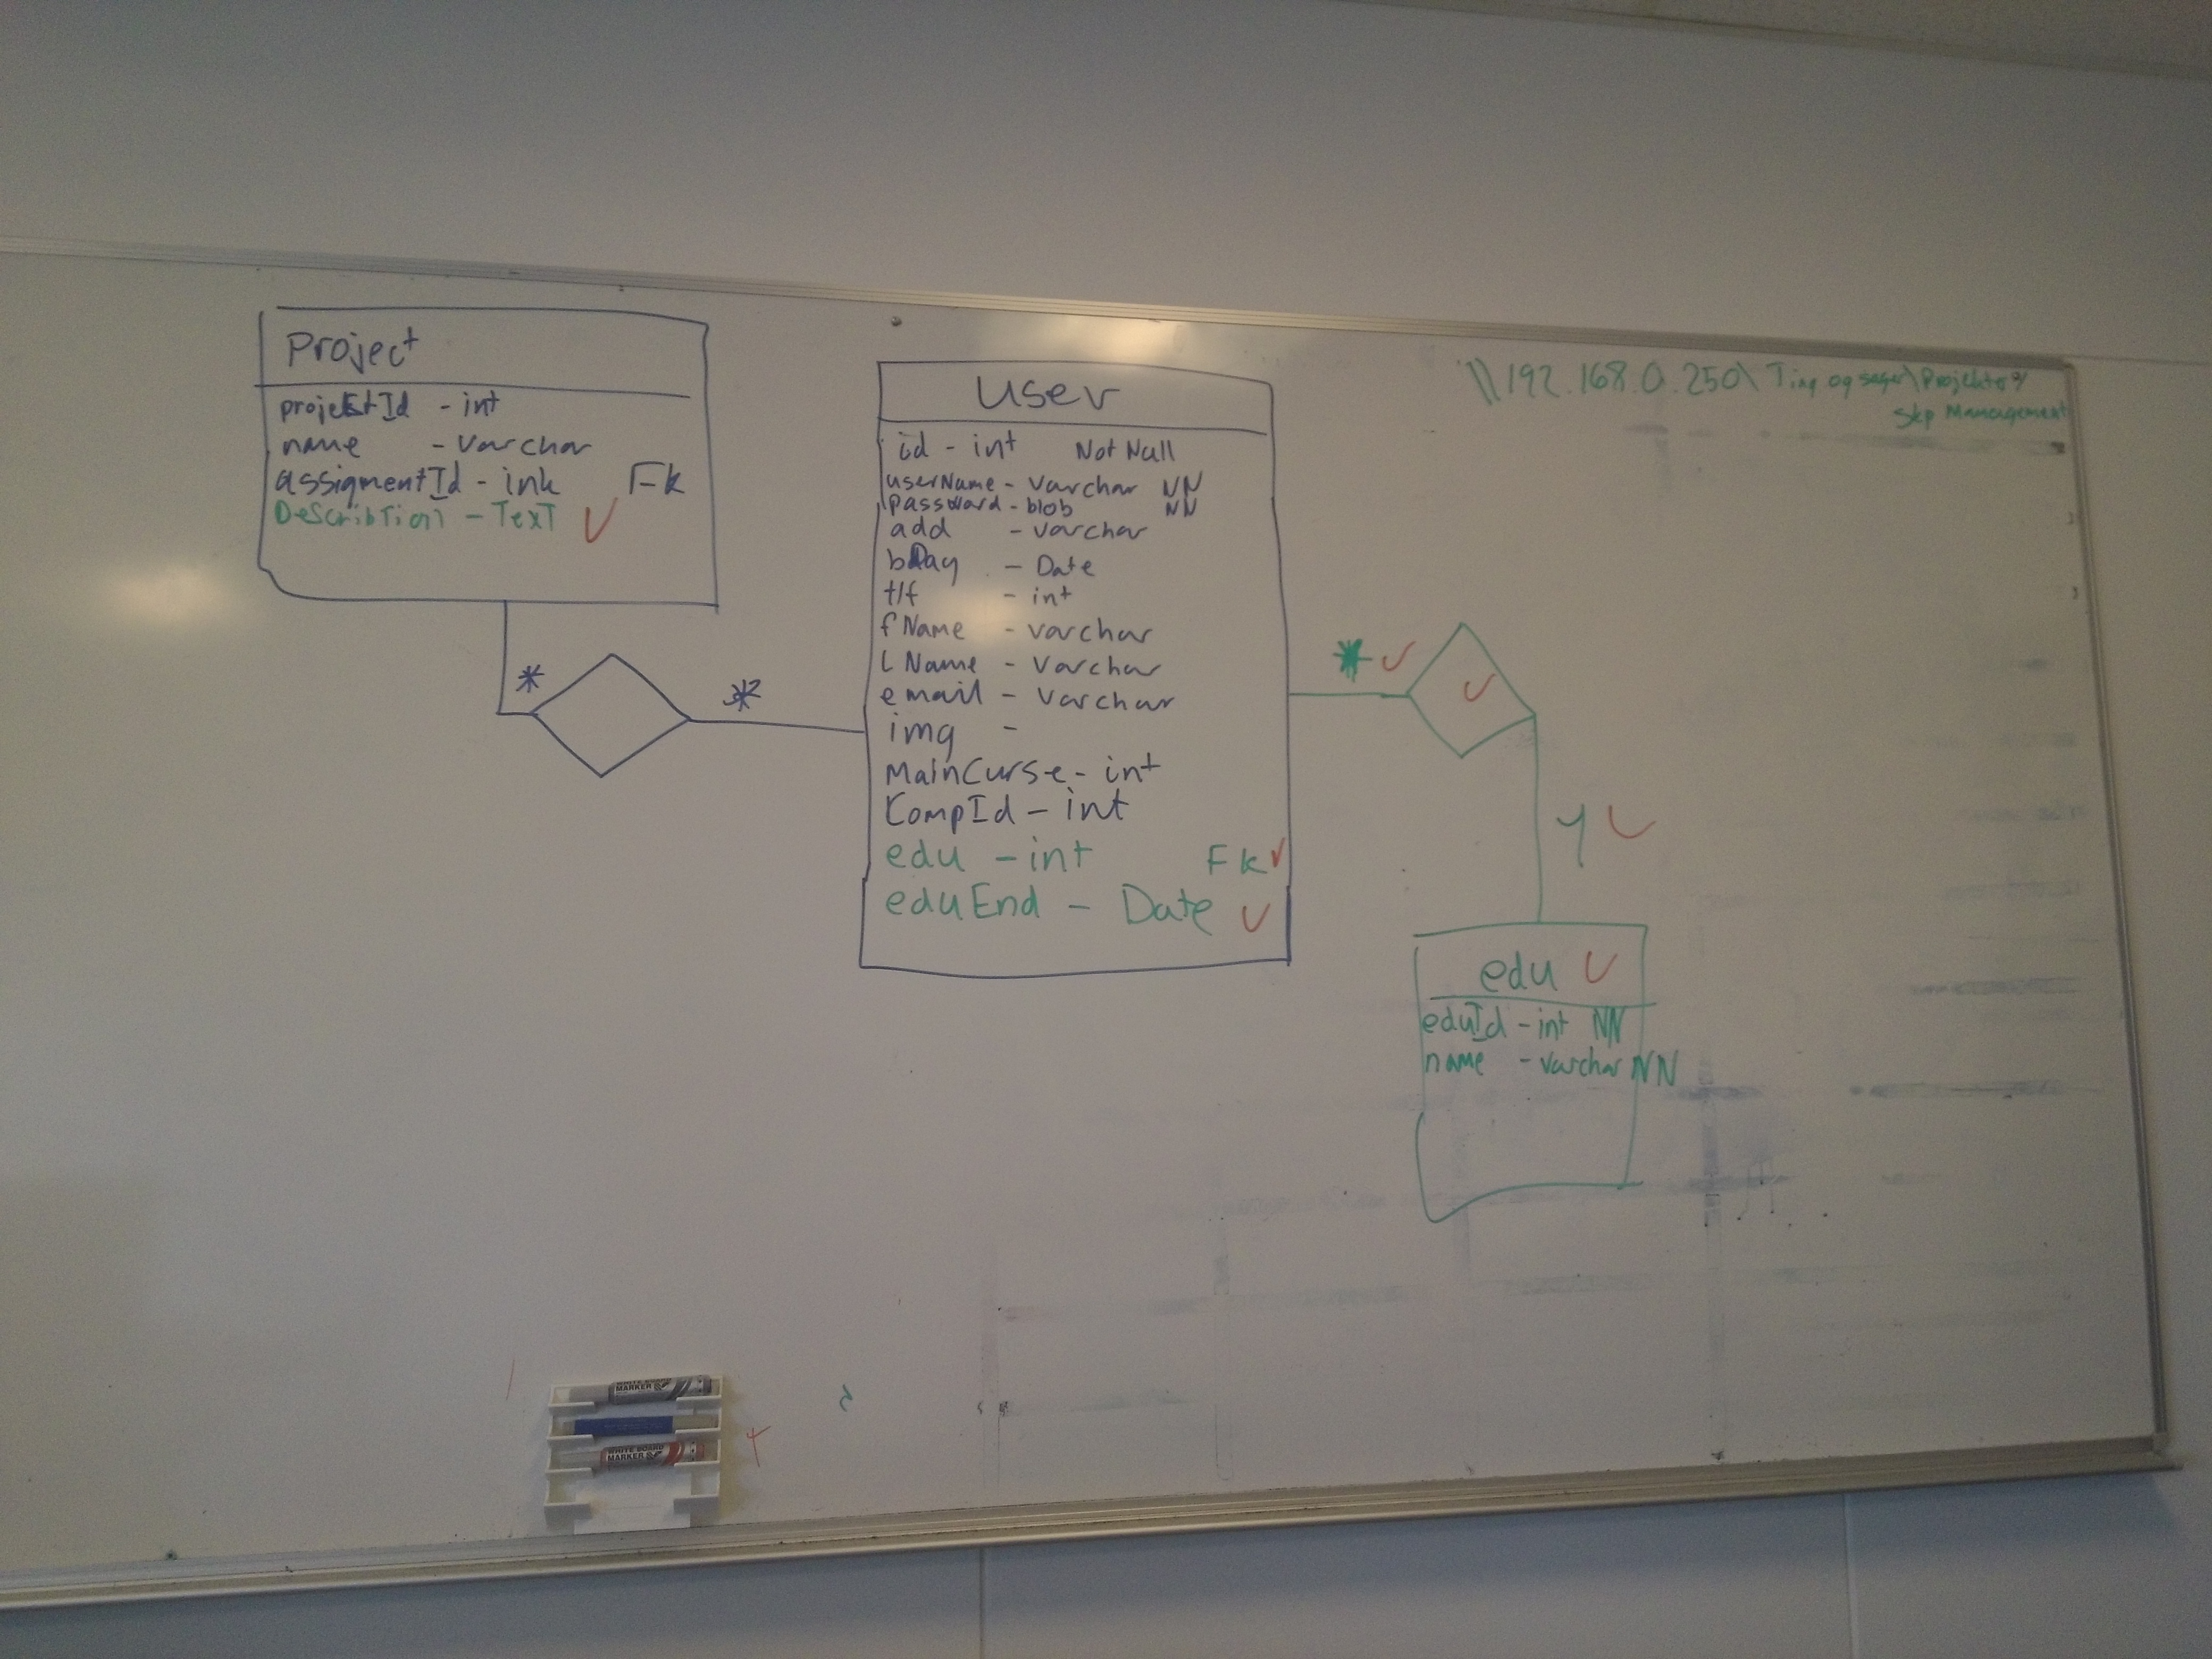 Project
projektId - int
name - Varchar
assigmentId - ink Fk
Describtion - Text
*
*
User
id - int Not Null
userName - Varchar NN
Password - blob NN
add - varchar
bDay - Date
tlf - int
fName - varchar
LName - Varchar
email - Varchar
img -
MainCurse - int
CompId - int
edu - int Fk
eduEnd - Date
*
edu
eduId - int NN
name - varchar NN
\\192.168.0.250\Ting og sager\Projekter\
Skp Management
WHITE BOARD
MARKER
WHITE BOARD
MARKER